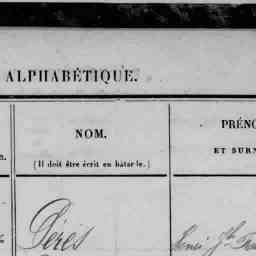 ALPHABÉTIQUE.
NOM.
(Il doit être écrit en bâtarde.)
PRÉNO
ET SURN
Pérès